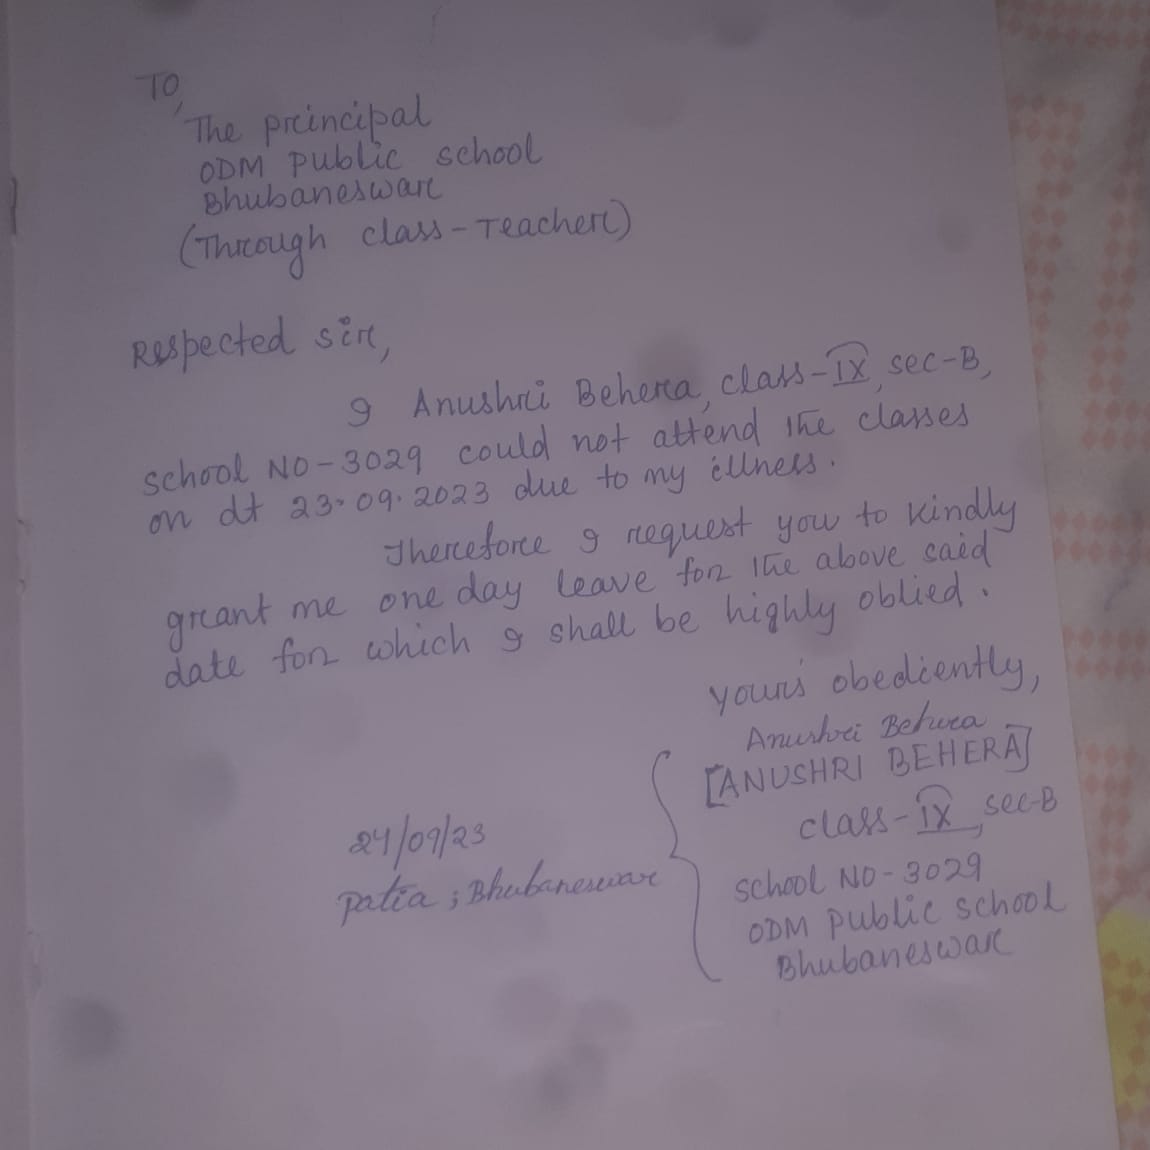 TO,
The principal
ODM public school
Bhubaneswar
(Through class-Teacher)
Respected sir,
I Anushri Behera, class-IX, sec-B,
school NO-3029 could not attend the classes
on dt 23.09.2023 due to my illness.
Therefore I request you to kindly
grant me one day leave for the above said
date for which I shall be highly oblied.
yours obediently,
Anushri Behera
[ANUSHRI BEHERA]
class-IX, sec-B
school NO-3029
ODM public school
Bhubaneswar
24/09/23
patia ; Bhubaneswar